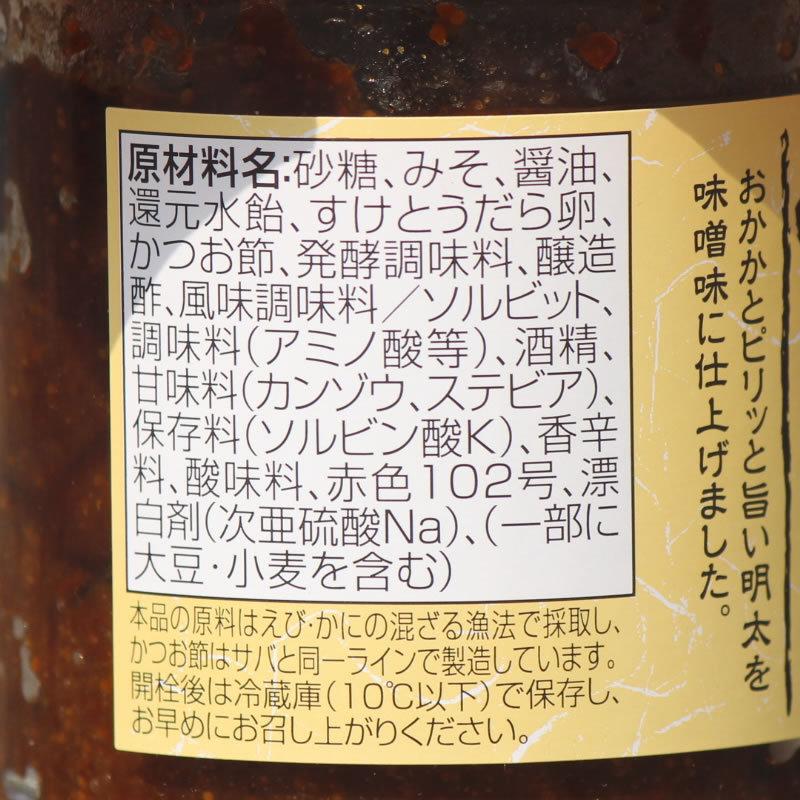 原材料名:砂糖、みそ、醤油、
還元水飴、すけとうだら卵、
かつお節、発酵調味料、醸造
酢、風味調味料／ソルビット、
調味料(アミノ酸等)、酒精、
甘味料(カンゾウ、ステビア)、
保存料(ソルビン酸K)、香辛
料、酸味料、赤色102号、漂
白剤(次亜硫酸Na)、(一部に
大豆・小麦を含む)
本品の原料はえび・かにの混ざる漁法で採取し、
かつお節はサバと同一ラインで製造しています。
開栓後は冷蔵庫(10℃以下)で保存し、
お早めにお召し上がりください。
おかかとピリッと旨い明太を
味噌味に仕上げました。